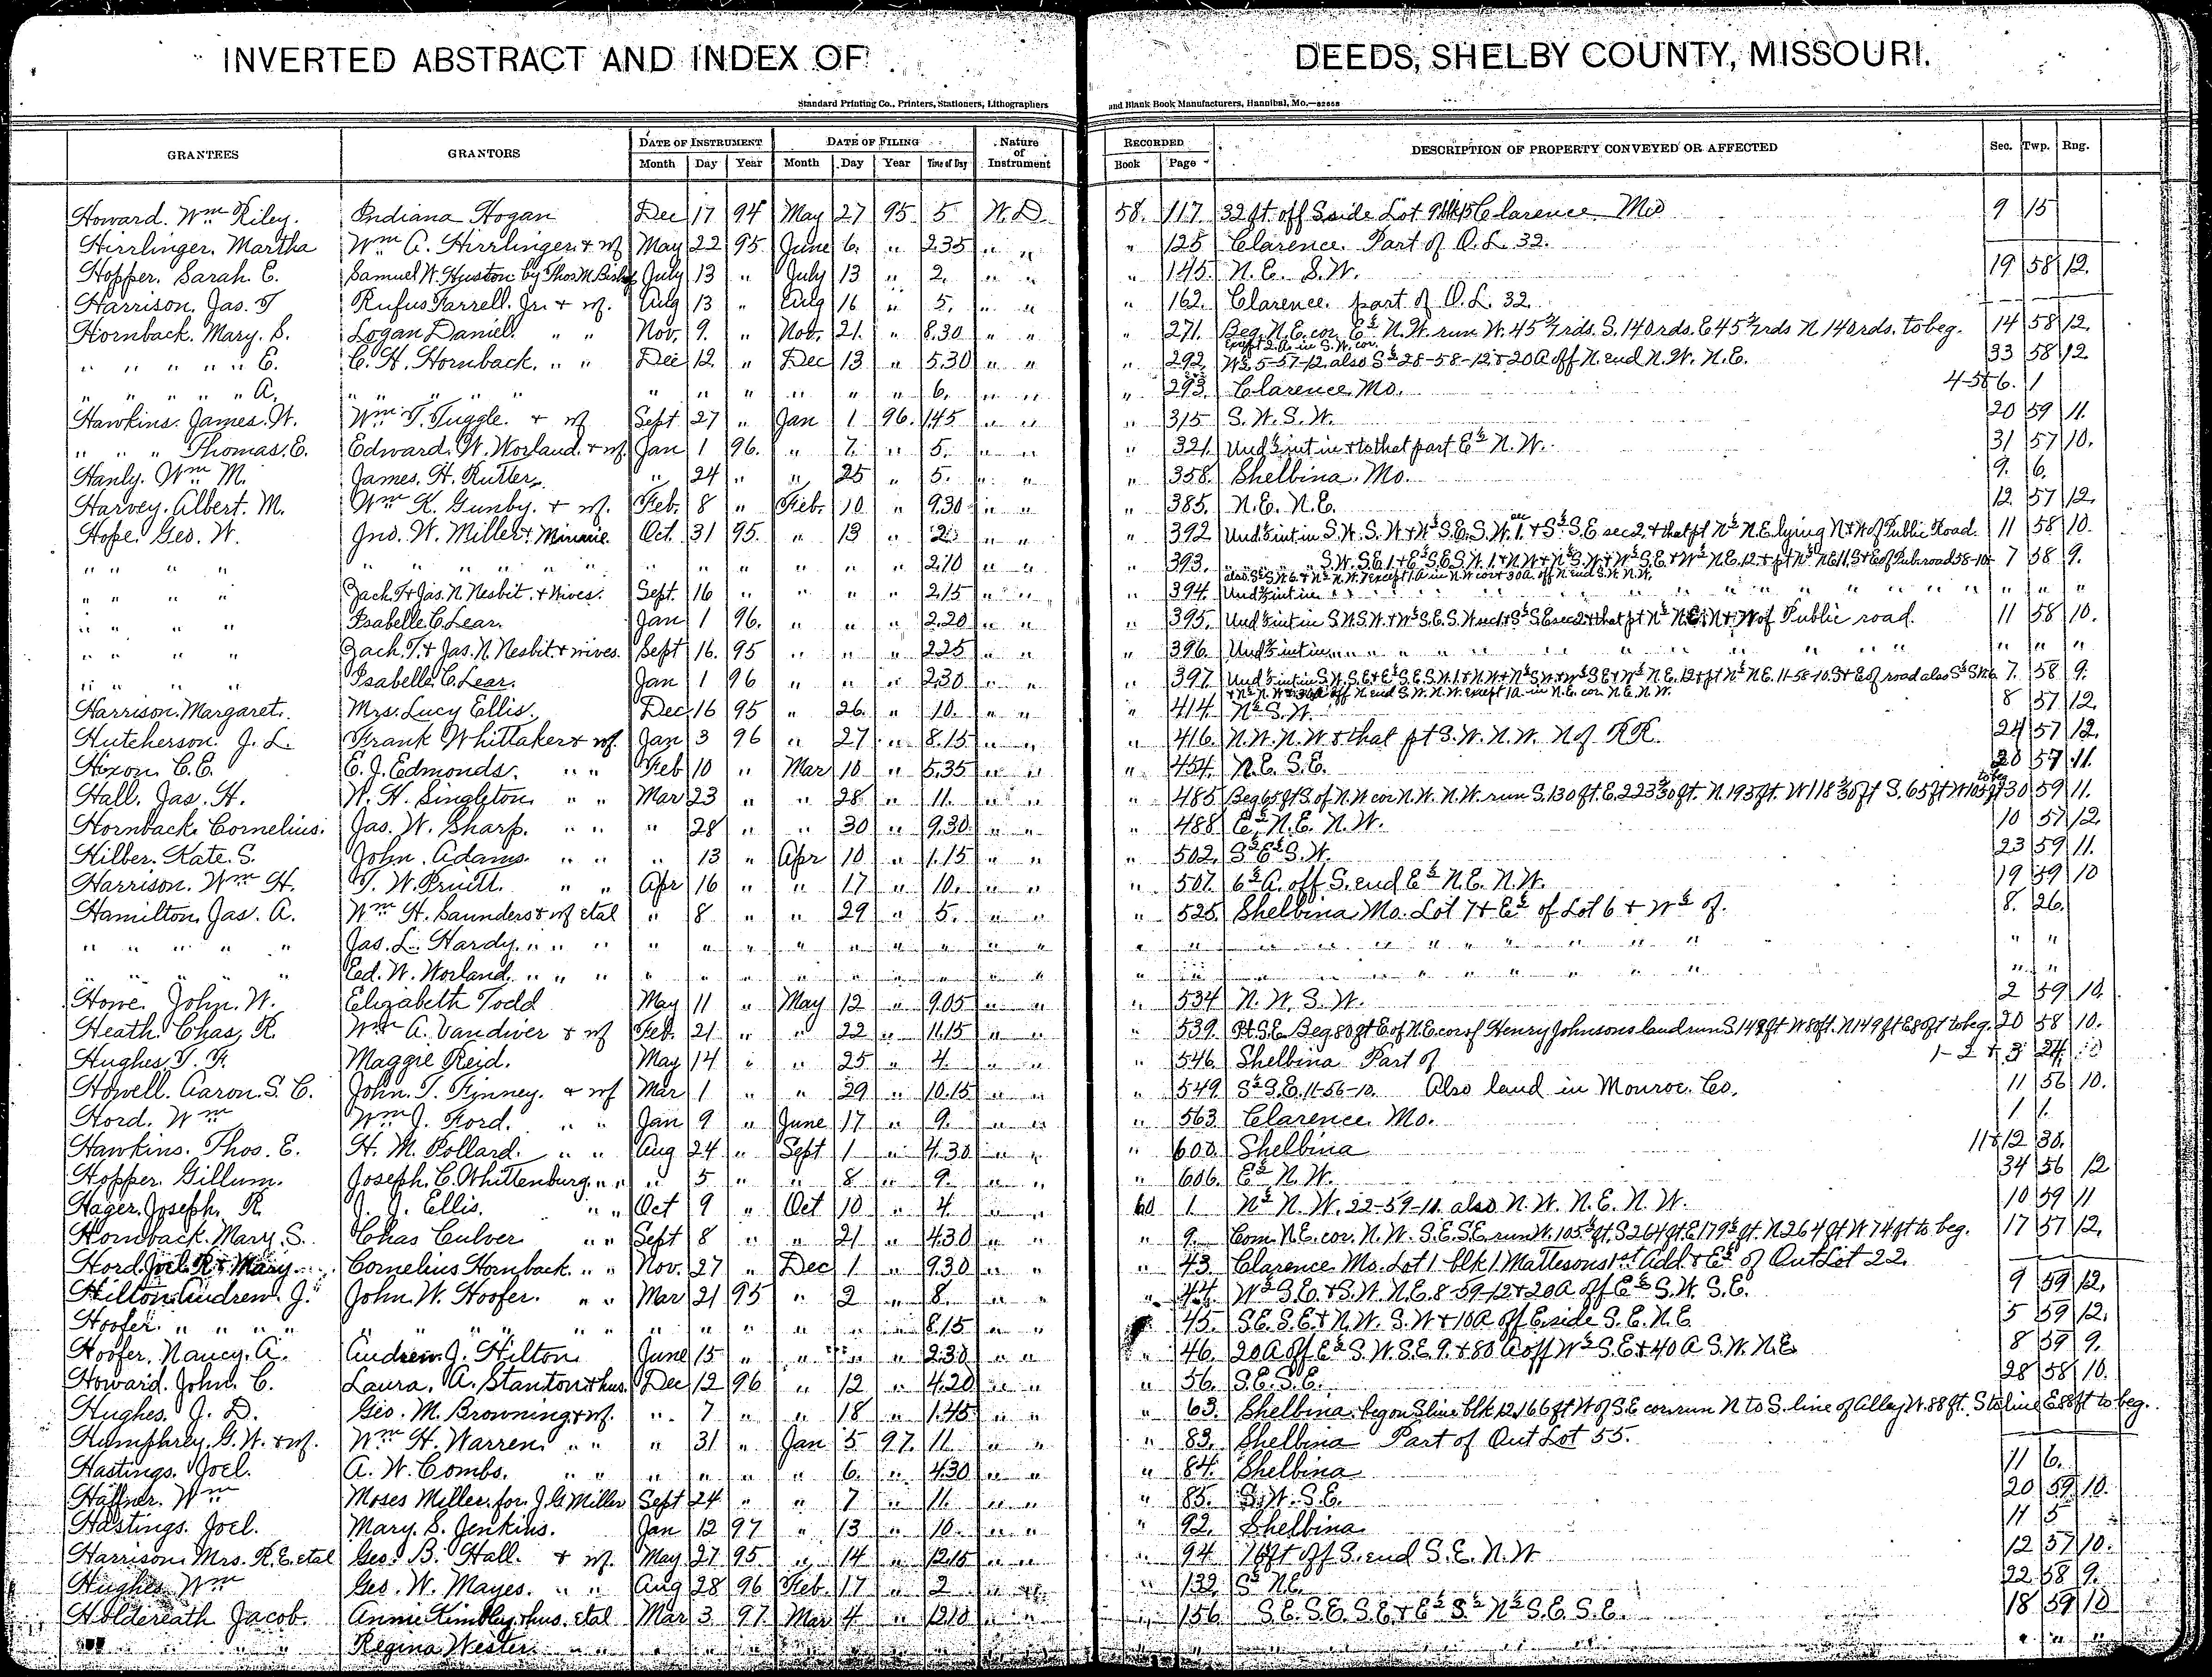 INVERTED ABSTRACT AND INDEX OF DEEDS, SHELBY COUNTY, MISSOURI.
Standard Printing Co., Printers, Stationers, Lithographers and Blank Book Manufacturers, Hannibal, Mo.—82868
GRANTEES GRANTORS DATE OF INSTRUMENT DATE OF FILING Nature of Instrument RECORDED DESCRIPTION OF PROPERTY CONVEYED OR AFFECTED Sec. Twp. Rng.
Month Day Year Month Day Year Time of Day Book Page
Howard. Wm Riley. Indiana Hogan Dec 17 94 May 27 95 5 W.D. 58. 117. 32 ft. off S side Lot 9 blk 15 Clarence Mo 9 15
Hirrlinger. Martha Wm A. Hirrlinger. & wf May 22 95 June 6. " 2.35 " " " 125 Clarence. Part of O.L. 32.
Hopper. Sarah E. Samuel W. Huston by Thos M. July 13 " July 13 " 2. " " " 145. N.E. S.W. 19 58 12.
Harrison. Jas. T Rufus Farrell. Jr. & wf. Aug 13 " Aug 16 " 5. " " " 162. Clarence. part of O.L. 32.
Hornback. Mary. S. Logan Daniel. " " Nov. 9. " Nov. 21. " 8.30 " " " 271. Beg. N.E. cor. E½ N.W. run W. 45 5/7 rds. S. 140 rds. E 45 5/7 rds N 140 rds. to beg. 14 58 12.
except 2 A. in S.W. cor.
" " " " " E. C. H. Hornback. " " Dec 12 " Dec 13 " 5.30 " " " 292. W½ 5-57-12. also S½ 28-58-12 & 20 A off N. end N.W. N.E. 33 58 12
" " " " " A. " " " " " " " " " " 6. " " " 293. Clarence Mo. 4-5&6. 1
Hawkins. James. W. Wm T. Tuggle. & wf Sept 27 " Jan 1 96. 1.45 " " " 315 S.W. S.W. 20 59 11.
" " " Thomas. E. Edward. W. Worland. & wf. Jan 1 96. " 7. " 5. " " " 321. Und ½ int in & to that part E½ N.W. 31 57 10.
Hanly. Wm M. James. H. Rutler. " 24 " " 25 " 5. " " " 358. Shelbina. Mo. 9. 6.
Harvey. Albert. M. Wm K. Gunby. & wf. Feb. 8 " Feb. 10 " 9.30 " " " 385. N.E. N.E. 12 57 12.
Hope. Geo. W. Jno. W. Miller & Minnie Oct. 31 95. " 13 " 2. " " " 392 Und ½ int in S.W. S.W. & W½ S.E. S.W. sec 1. & S½ S.E sec 2. & that pt N½ N.E. lying N & W of Public Road. 11 58 10.
" " " " " " " " " " " " " " " " 2.10 " " " 393. " " " S.W. S.E. 1 & E½ S.E. S.W. 1. & N.W. & N½ S.W. & W½ S.E & W½ N.E. 12. & pt N½ N.E 11. S & E of Pub. road 58-10 7 58 9.
also S½ S.W. 6. & N½ N.W. 7 except 1 A. in N.W. cor & 30 A. off N end S.W. N.W.
" " " " Zach. T & Jas. N Nesbit. & wives. Sept. 16 " " " " 2.15 " " " 394. Und ½ int in " " " " " " " " " " "
" " " " Isabelle C. Lear. Jan 1 96. " " " 2.20 " " " 395. Und ½ int in S.W. S.W. & W½ S.E. S.W. sec 1 & S½ S.E sec 2 & that pt N½ N.E. N & W of Public road. 11 58 10.
" " " " Zach. T. & Jas. N. Nesbit. & wives. Sept 16. 95 " " " 2.25 " " " 396. Und ½ int in " " " " " " " " " " "
" " " " Isabelle. C. Lear. Jan 1 96 " " " 2.30 " " " 397. Und ½ int in S.W. S.E & E½ S.E. S.W. 1. & N.W. & N½ S.W. & W½ S.E & W½ N.E. 12 & pt N½ N.E. 11-58-10. S & E of road also S½ S.W. 6 7. 58 9.
& N½ N.W. & 30 A off N end S.W. N.W. except 1 A. in N.E. cor. N.E. N.W.
Harrison. Margaret. Mrs. Lucy Ellis. Dec. 16 95 " 26. " 10. " " " 414. N½ S.W. 8 57 12.
Hutcherson. J. L. Frank Whittaker & wf. Jan 3 96 " 27 " 8.15 " " " 416. N.W. N.W. & that pt S.W. N.W. N of RR. 24 57 12.
Hixon. C. E. E. J. Edmonds. " " Feb 10 " Mar 10 " 5.35 " " " 454. N.E. S.E. 20 57 11.
Hall. Jas. H. W. H. Singleton. " " Mar 23 " " 28 " 11. " " " 485 Beg 65 ft S. of N.W cor N.W. N.W. run S. 130 ft. E. 223 ft. N. 195 ft. W 118 ft S. 65 ft W 105 ft to beg 30 59 11.
Hornback. Cornelius. Jas. W. Sharp. " " " 28 " " 30 " 9.30. " " " 488. E½ N.E. N.W. 10 57 12.
Hilber. Kate. S. John. Adams. " " " 13 " Apr 10 " 1.15 " " " 502. S½ E½ S.W. 23 59 11.
Harrison. Wm H. T. W. Pruitt. " " Apr 16 " " 17 " 10. " " " 507. 6⅔ A. off S. end E½ N.E. N.W. 19 59 10
Hamilton. Jas. A. Wm H. Saunders & wf etal " 8 " " 29 " 5. " " " 525. Shelbina. Mo. Lot 7 & E½ of Lot 6 & W½ of. 8. 26.
" " " " " Jas. L. Hardy. " " " " " " " " " " " " " " " " " " " " " " " " "
" " " " " Ed. W. Worland. " " " " " " " " " " " " " " " " " " " " " " " "
Howe. John. W. Elizabeth Todd May 11 " May 12 " 9.05 " " " 534. N.W. S.W. 2 59 10.
Heath. Chas. R. Wm A. Vandiver & wf Feb. 21 " " 22 " 11.15 " " " 539. Pt. S.E. Beg. 80 ft E. of N.E. cor of Henry Johnsons land run S. 149 ft W 80 ft. N. 149 ft E 80 ft to beg. 20 58 10.
Hughes. T. F. Maggie Reid. May 14 " " 25 " 4. " " " 546. Shelbina Part of 1-2 & 3 24
Howell. Aaron. S. C. John. T. Finney. & wf Mar 1 " " 29 " 10.15 " " " 549 S½ S.E. 11-56-10. Also land in Monroe. Co. 11 56 10.
Hord. Wm Wm J. Ford. " " Jan 9 " June 17 " 9. " " " 563. Clarence. Mo. 1. 1.
Hawkins. Thos. E. H. M. Pollard. " " Aug 24 " Sept 1 " 4.30 " " " 600. Shelbina 11&12 30.
Hopper. Gillum. Joseph. C. Whittenburg. " " " 5 " " 8 " 9. " " " 606. E½ N.W. 34 56 12
Hager. Joseph. R. J. J. Ellis. " " Oct 9 " Oct 10 " 4 " " 60 1. N½ N.W. 22-59-11. also N.W. N.E. N.W. 10 59 11
Hornback. Mary. S. Chas Culver " " Sept 8 " " 21 " 4.30 " " " 9. Com. N.E. cor. N.W. S.E. S.E. run W. 105½ ft. S 264 ft. E 179½ ft. N 264 ft W 74 ft to beg. 17 57 12.
Hord. Joel. R. & Mary. Cornelius Hornback. " " Nov. 27 " Dec 1 " 9.30 " " " 43. Clarence Mo. Lot 1 blk 1 Mattesons 1st Add. & E½ of Out Lot 22.
Hilton. Andrew. J. John. W. Hoofer. " " Mar 21 95 " 2 " 8. " " " 44. W½ S.E. & S.W. N.E. 8-59-12 & 20 A off E½ S.W. S.E. 9 59 12.
Hoofer. " " " " " " " " " " " " " " " 8.15 " " " 45. S.E. S.E. & N.W. S.W & 10 A off E. side S.E. N.E. 5 59 12.
Hoofer. Nancy. A. Andrew. J. Hilton June 15 " " " " 2.30 " " " 46. 20 A off E½ S.W. S.E. 9. & 80 A off W½ S.E & 40 A S.W. N.E. 8 59 9.
Howard. John. C. Laura. A. Stanton & hus. Dec 12 96 " 12 " 4.20 " " " 56. S.E. S.E. 28 58 10.
Hughes. J. D. Geo. M. Browning & wf. " 7 " " 18 " 1.45 " " " 63. Shelbina. beg on S line blk 12, 166 ft W of S.E cor run N to S. line of Alley W. 88 ft. S to line E 88 ft to beg.
Humphrey. G. W. & wf. Wm H. Warren " " " 31 " Jan 5 97. 11 " " " 83. Shelbina Part of Out Lot 55.
Hastings. Joel. A. W. Combs. " " " " " " 6. " 4.30 " " " 84. Shelbina 11 6.
Haffner. Wm Moses Miller. for J. G Miller Sept 24 " " 7 " 11. " " " 85. S.W. S.E. 20 59 10.
Hastings. Joel. Mary. S. Jenkins. Jan 12 97 " 13 " 10. " " " 92. Shelbina 11 5
Harrison. Mrs. R. E. etal Geo. B. Hall. & wf. May 27 95 " 14 " 12.15 " " " 94 16 ft off S. end S.E. N.W 12 57 10.
Hughes. Wm Geo. W. Mayes. " " Aug 28 96 Feb. 17 " 2 " " " 132. S½ N.E. 22 58 9.
Holdereath Jacob. Annie Kimbley & hus. etal Mar 3 97. Mar 4 " 12.10 " " " 156 S.E. S.E. S.E & E½ S½ N½ S.E. S.E. 18 59 10
" " " Regina Wester " " " " " " " " " " " " " " " " " "